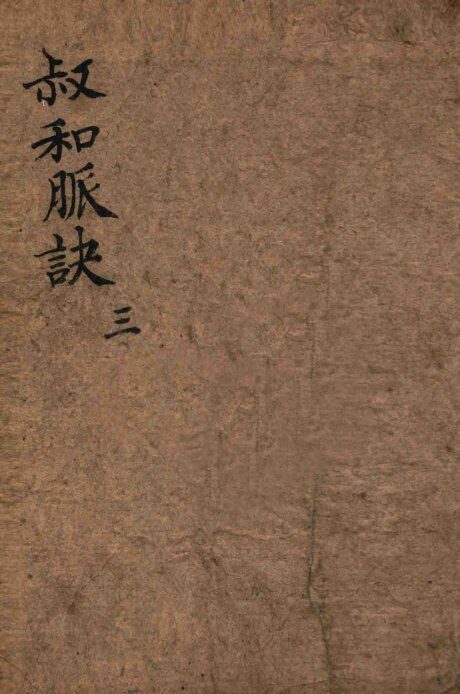 叔和脈訣
三